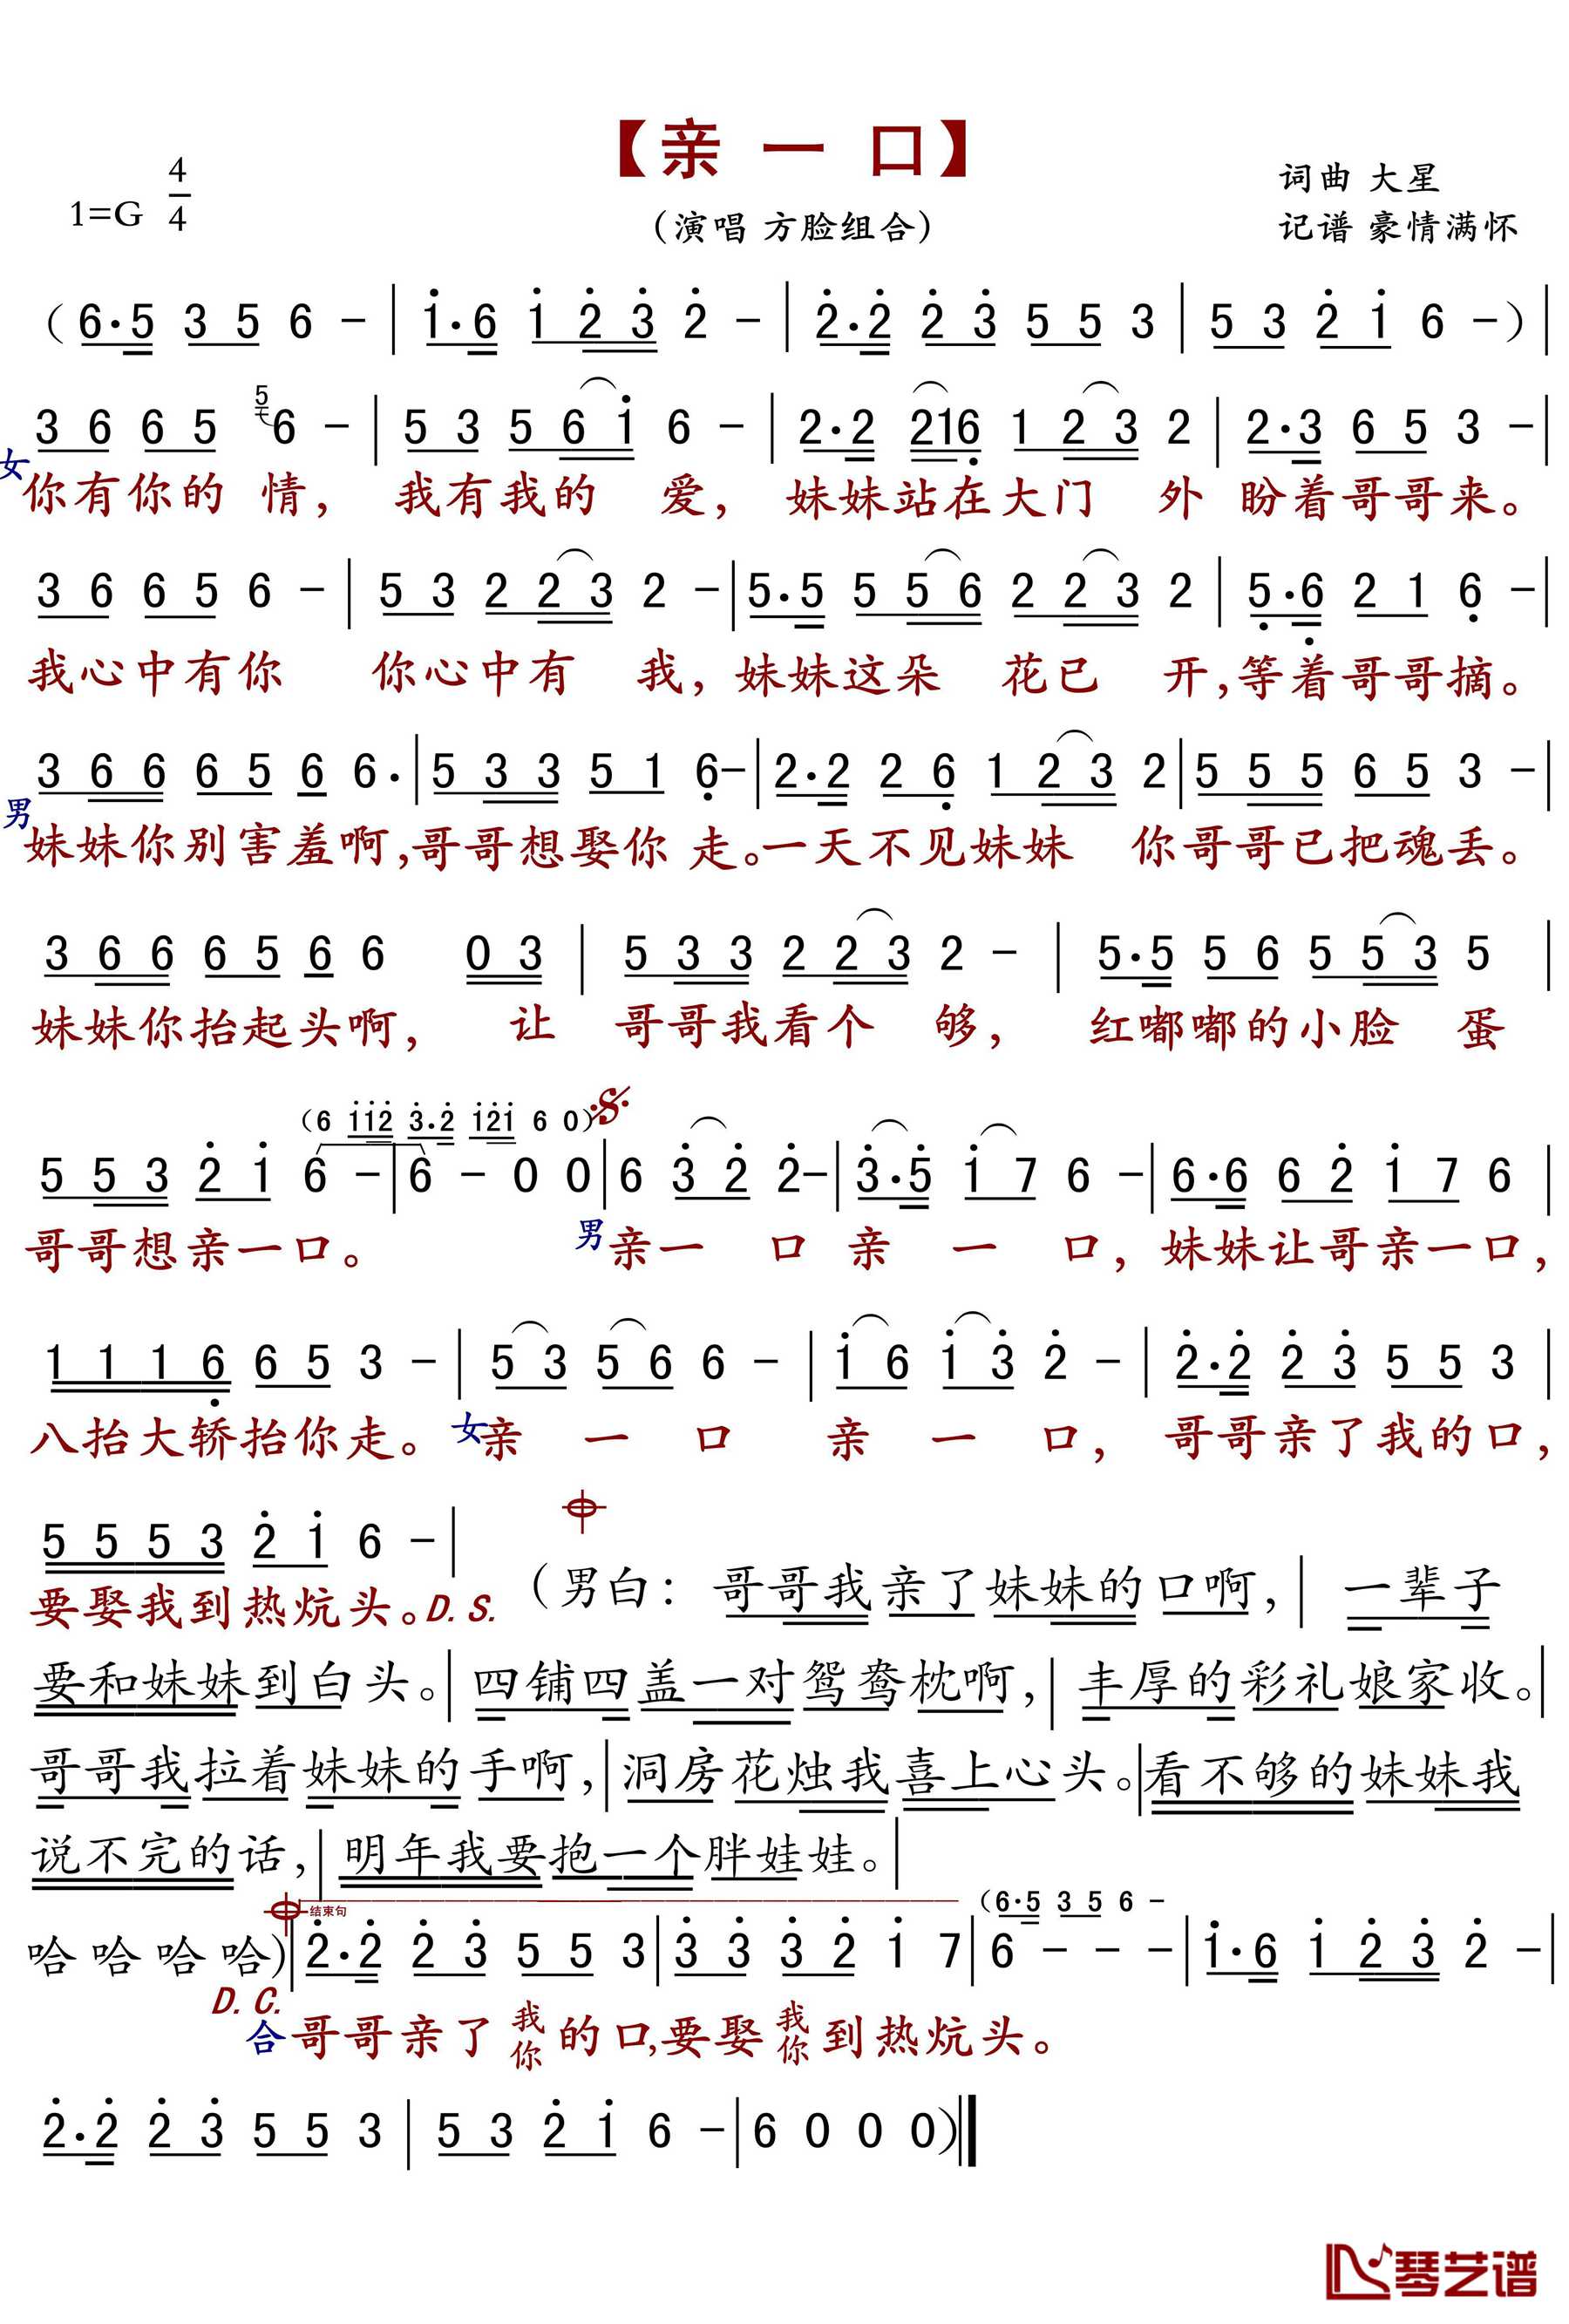 【亲 一 口】
1=G 4/4
(演唱 方脸组合)
词曲 大星
记谱 豪情满怀
(6·5 3 5 6 -|1̇·6 1̇ 2̇ 3̇ 2̇ -|2̇·2̇ 2̇ 3̇ 5 5 3|5 3 2̇ 1̇ 6 -)|
3 6 6 5 5 6 -|5 3 5 6 1̇ 6 -|2·2 2 1 6̣ 1 2 3 2|2·3 6 5 3 -|
女 你有你的 情, 我有我的 爱, 妹妹站在大门 外 盼着哥哥来。
3 6 6 5 6 -|5 3 2 2 3 2 -|5·5 5 5 6 2 2 3 2|5̣·6̣ 2 1 6̣ -|
我心中有你 你心中有 我, 妹妹这朵 花已 开,等着哥哥摘。
3 6 6 6 5 6 6·|5 3 3 5 1 6̣-|2·2 2 6̣ 1 2 3 2|5 5 5 6 5 3 -|
男 妹妹你别害羞啊,哥哥想娶你 走。一天不见妹妹 你哥哥已把魂丢。
3 6 6 6 5 6 6 0 3|5 3 3 2 2 3 2 -|5·5 5 6 5 5 3 5|
妹妹你抬起头啊, 让 哥哥我看个 够, 红嘟嘟的小脸 蛋
(6 1̇1̇2̇ 3̇·2̇ 1̇2̇1̇ 6 0)
5 5 3 2̇ 1̇ 6 -|6 - 0 0|6 3̇ 2̇ 2̇-|3̇·5̇ 1̇ 7 6 -|6·6 6 2̇ 1̇ 7 6|
哥哥想亲一口。 男 亲一 口 亲 一 口, 妹妹让哥亲一口,
1 1 1 6̣ 6 5 3 -|5 3 5 6 6 -|1̇ 6 1̇ 3̇ 2̇ -|2̇·2̇ 2̇ 3̇ 5 5 3|
八抬大轿抬你走。 女 亲 一 口 亲 一 口, 哥哥亲了我的口,
5 5 5 3 2̇ 1̇ 6 -|
要娶我到热炕头。D.S. (男白: 哥哥我亲了妹妹的口啊,| 一辈子
要和妹妹到白头。|四铺四盖一对鸳鸯枕啊,|丰厚的彩礼娘家收。|
哥哥我拉着妹妹的手啊,|洞房花烛我喜上心头。|看不够的妹妹我
说不完的话,|明年我要抱一个胖娃娃。|
结束句 (6·5 3 5 6 -
哈哈哈哈)|2̇·2̇ 2̇ 3̇ 5 5 3|3̇ 3̇ 3̇ 2̇ 1̇ 7|6 - - -|1̇·6 1̇ 2̇ 3̇ 2̇ -|
D.C.
合 哥哥亲了 我 的口,要娶 我 到热炕头。
你 你
2̇·2̇ 2̇ 3̇ 5 5 3|5 3 2̇ 1̇ 6 -|6 0 0 0)‖
琴艺谱